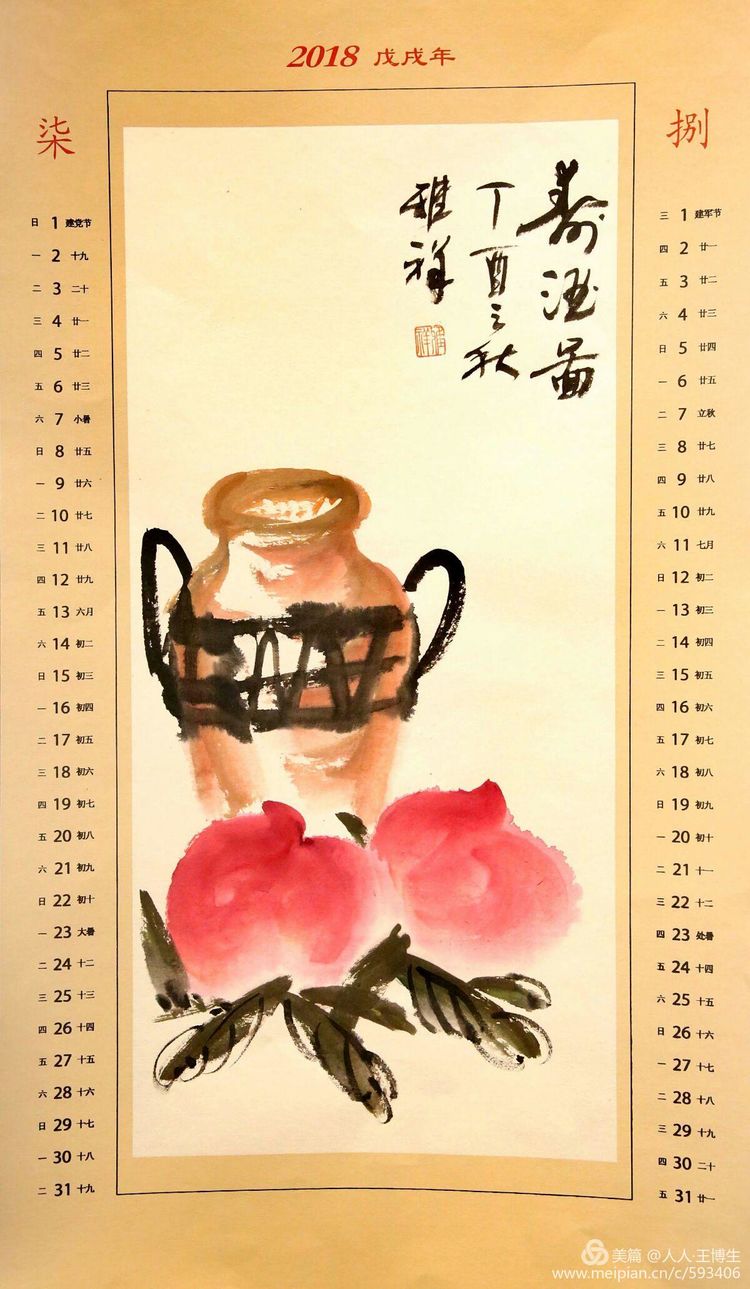 2018 戊戌年
柒
日 1 建党节
一 2 十九
二 3 二十
三 4 廿一
四 5 廿二
五 6 廿三
六 7 小暑
日 8 廿五
一 9 廿六
二 10 廿七
三 11 廿八
四 12 廿九
五 13 六月
六 14 初二
日 15 初三
一 16 初四
二 17 初五
三 18 初六
四 19 初七
五 20 初八
六 21 初九
日 22 初十
一 23 大暑
二 24 十二
三 25 十三
四 26 十四
五 27 十五
六 28 十六
日 29 十七
一 30 十八
二 31 十九
寿酒图
丁酉之秋
雅祥
捌
三 1 建军节
四 2 廿一
五 3 廿二
六 4 廿三
日 5 廿四
一 6 廿五
二 7 立秋
三 8 廿七
四 9 廿八
五 10 廿九
六 11 七月
日 12 初二
一 13 初三
二 14 初四
三 15 初五
四 16 初六
五 17 初七
六 18 初八
日 19 初九
一 20 初十
二 21 十一
三 22 十二
四 23 处暑
五 24 十四
六 25 十五
日 26 十六
一 27 十七
二 28 十八
三 29 十九
四 30 二十
五 31 廿一
美篇 @人人·王博生
www.meipian.cn/c/593406